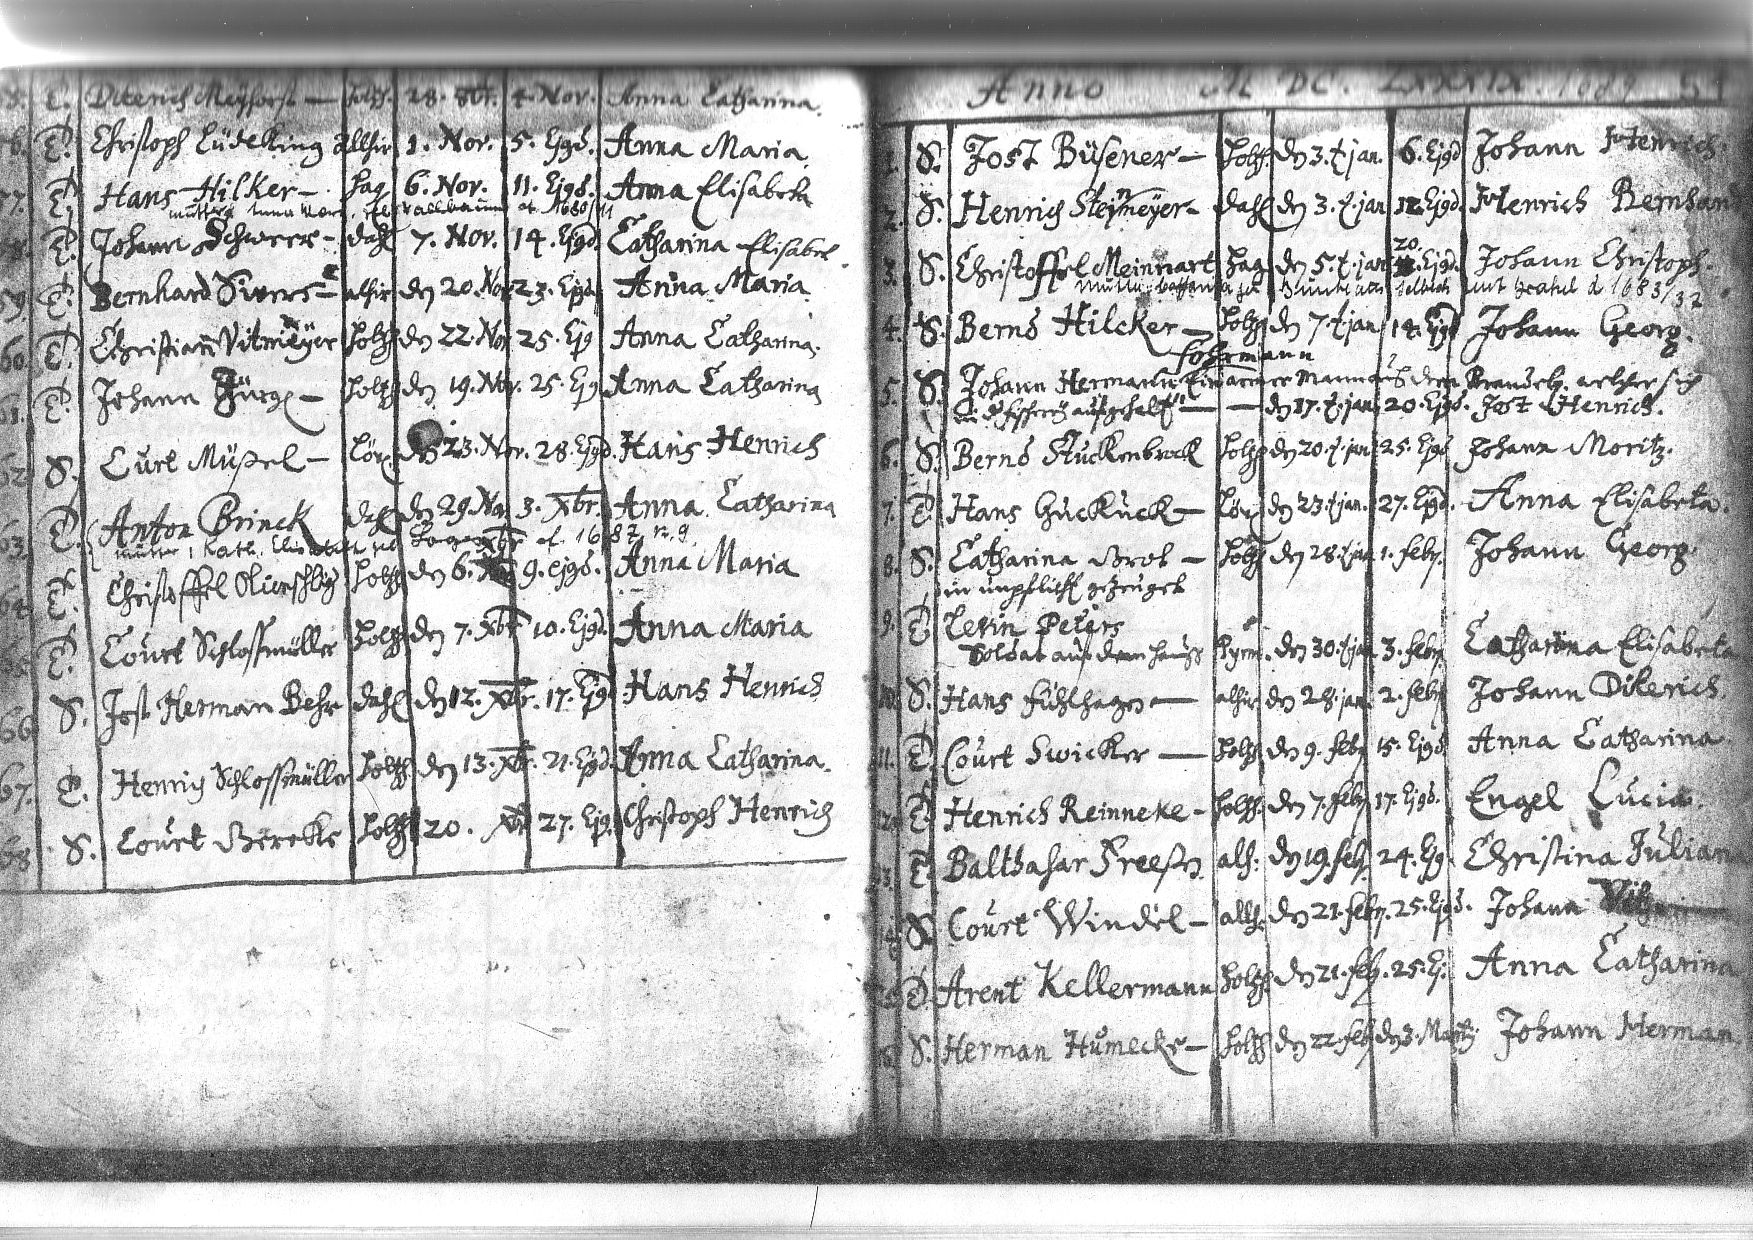 Diterich Meyhorst — holtzh. 28. 8br. 4. Nov. Anna Catharina.
T. Christoph Lüdeking allhir 1. Nov. 5. Ejgd. Anna Maria
57. T. Hans Hilker — hag. 6. Nov. 11. Ejgd. Anna Elisabeta
T. Johann Schweer — dahl 7. Nov. 14. Ejgd. Catharina Elisabet.
59. T. Bernhard Sivers — alhir den 20. Nov. 23. Ejgd. Anna Maria
60. T. Christian Vitmeyer holtzh den 22. Nov 25. Ejg Anna Catharina.
61. T. Johann Jürge — holtzh den 19. Nov. 25. Ejg Anna Catharina
62 S. Curt Müßel — Lör. den 23. Nov. 28. Ejgd. Hans Henrich
63. T. Anton Brinck dahl den 29. Nov 3. Xbr. Anna Catharina
64. T. Christoffel holtzh den 6. Xbr 9. ejgd. Anna Maria
T. Court Schlossmüller holtzh den 7. Xbr 10. Ejgd. Anna Maria
66 S. Jost Herman Behr dahl den 12. Xbr. 17. Ejgd Hans Henrich
67. T. Henrich Schlossmüller holtzh den 13. Xbr. 21. Ejgd. Anna Catharina.
68 S. Court Bereke holtzh 20. Xbr 27. Ejg. Christoph Henrich
Anno M DC. LXXXIX. 1689 51
1. S. Jost Büsener — holtzh. den 3. jan. 6. Ejgd Johann Henrich.
2. S. Henrich Steinmeyer — dahl den 3. jan 12. Ejgd. Henrich Bernhard
3. S. Christoffel Meinhart hag den 5. jan 20. Ejgd. Johann Christoph.
4. S. Bernd Hilcker — holtzh den 7. jan 14. Ejgd Johann Georg.
Fohrmann
5. S. Johann Hermann Ein armer Mann auß dem Brandeb. welcher sich
aufgehalt — — den 17. jan. 20. Ejgd. Jost Henrich.
6. S. Bernd Stuckenbrock holtzh den 20. jan 25. Ejgd Johann Moritz.
7. T. Hans Guckuck — Lör. den 23. jan. 27. Ejgd. Anna Elisabeta.
8. S. Catharina Brol — holtzh den 28. jan 1. febr. Johann Georg.
in unpflicht gezeuget
9. T. Levin Peters
Soldat aus dem hauß Pyrm. den 30. jan 3. febr Catharina Elisabeta
10. S. Hans Fühlhagen — alhir den 28. jan. 2. febr Johann Diterich.
11. T. Court Swicker — holtzh den 9. febr 15. Ejgd. Anna Catharina.
12. T. Henrich Reinneke — holtzh. den 7. febr 17. Ejgd. Engel Lucia.
13. T. Balthasar Freesen alh: den 19. feb. 24. Ejg Christina Julian
14. S. Court Windel — allh. den 21. febr. 25. Ejgd. Johann
T. Arent Kellermann holtzh. den 21. feb. 25. Ej. Anna Catharina
S. Herman Humecke — holtzh den 22. feb den 3. Martij Johann Herman